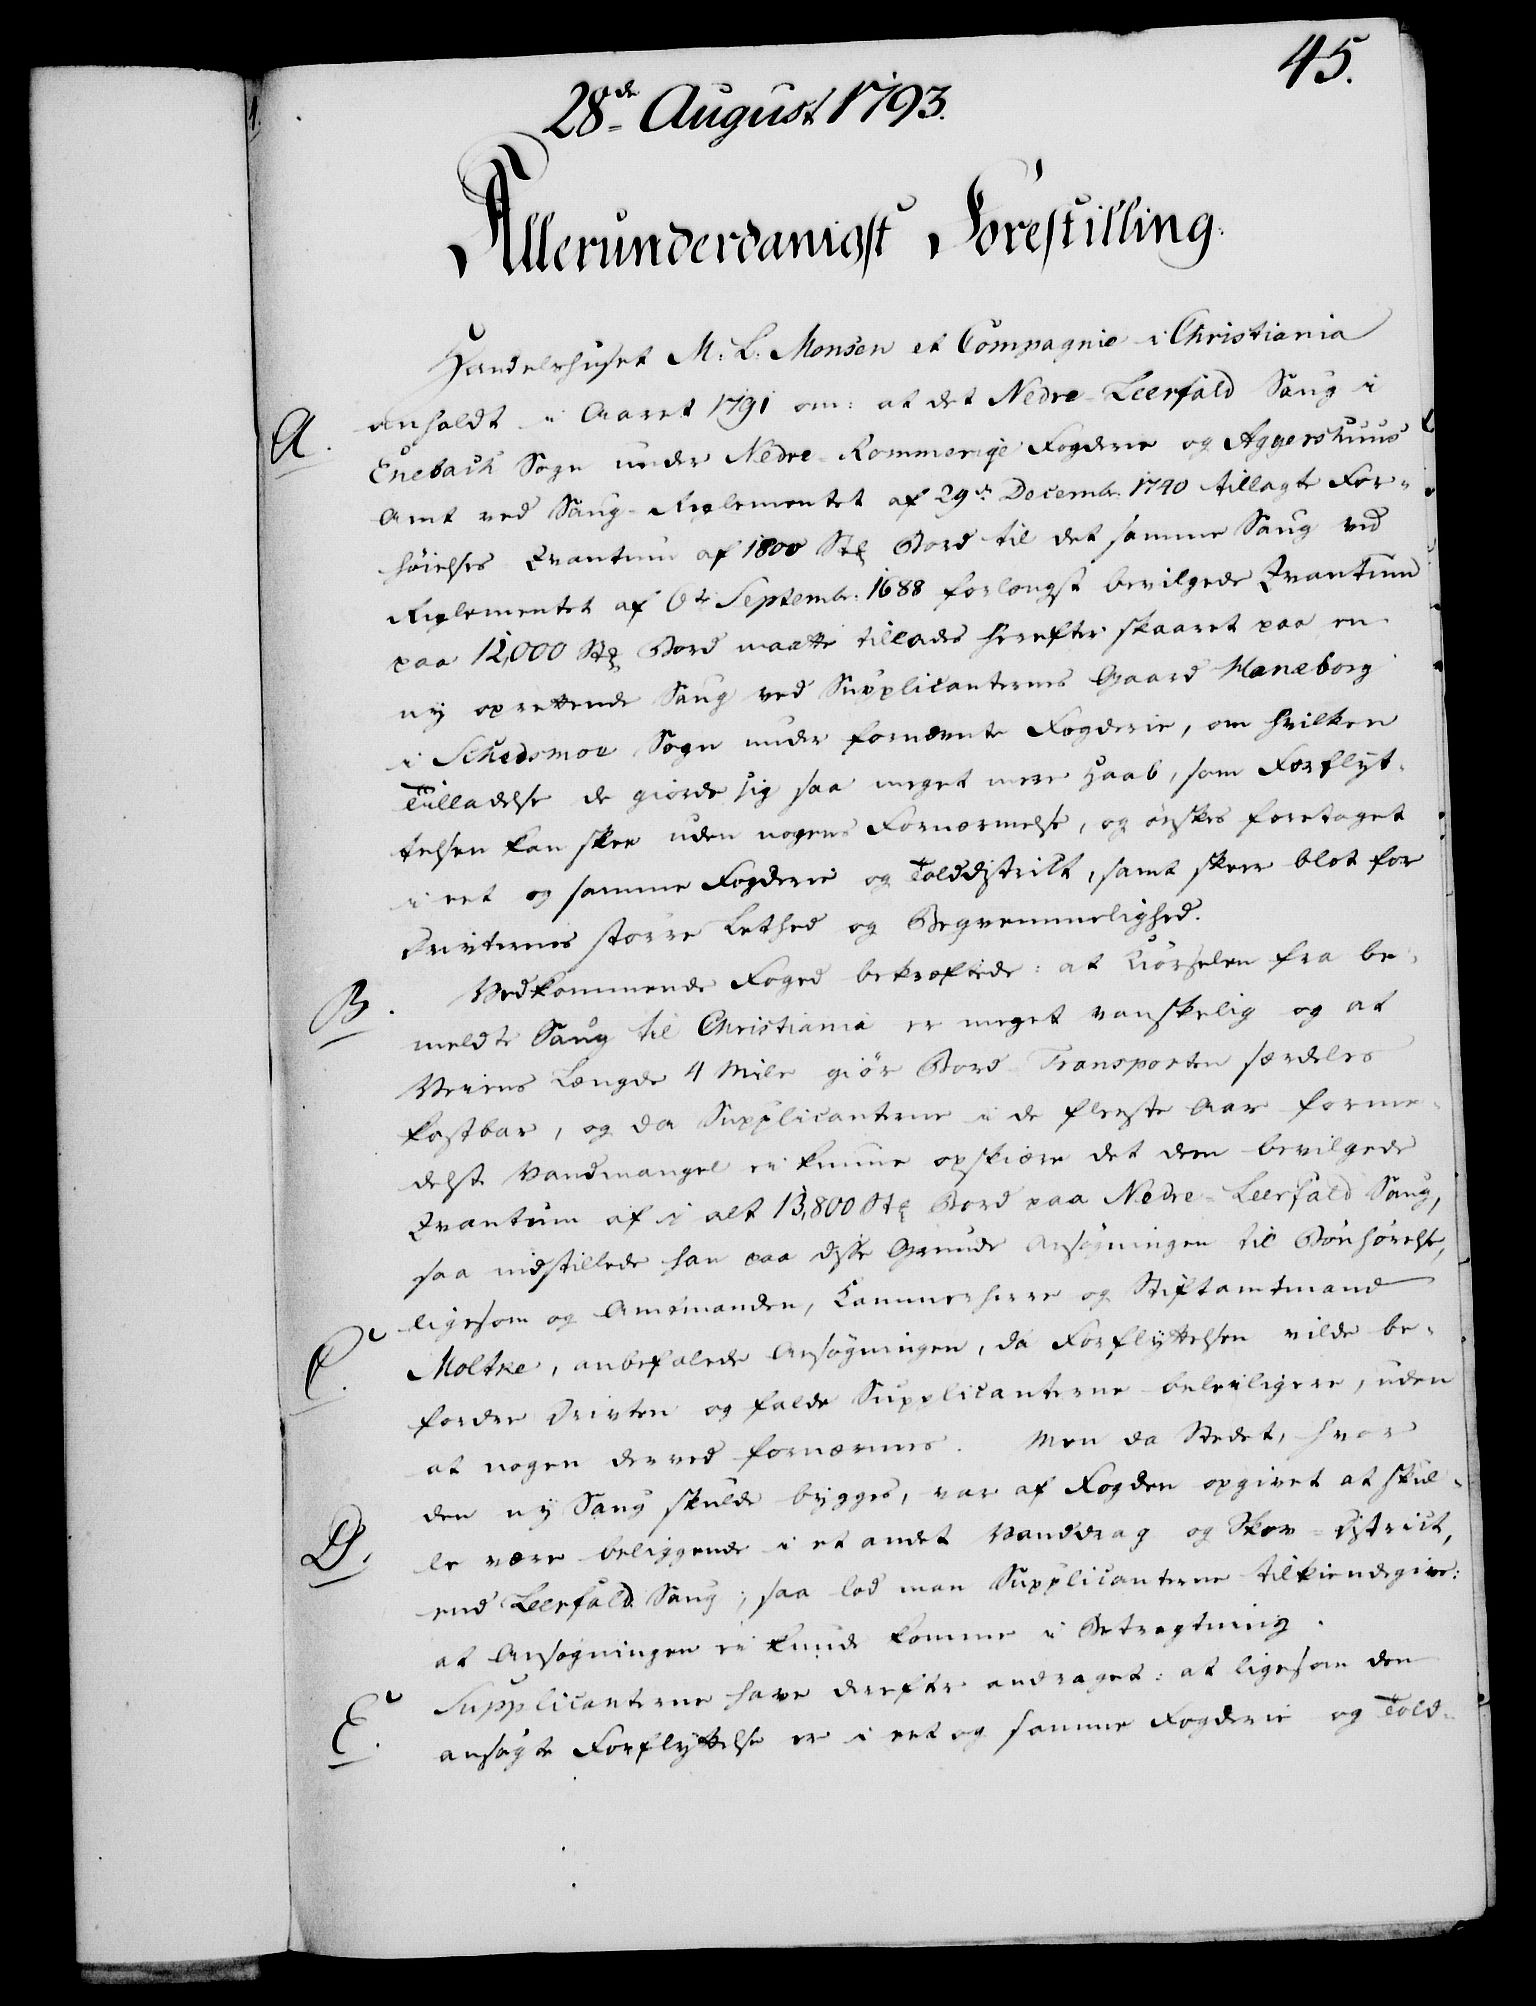 45.
28de August 1793.
Allerunderdanigst Forestilling.
Handelshuset M: L: Monsen et Compagnie i Christiania
A. anholdt i Aaret 1791 om: at det Nedre-Leerfald Saug i
Enebach Sogn under Nedre-Rommerige Fogderie og Aggershuus
Amt ved Saug-Reglementet af 29de Decembr. 1740 tillagte For-
høielses Qvantum af 1800 Stk Bord til det samme Saug ved
Reglementet af 6te Septembr. 1688 forlængst bevilgede Qvantum
paa 12,000 Stk Bord maatte tillades herefter skaaret paa en
ny oprettende Saug ved Supplicanternes Gaard Mæneborg
i Schedsmoe Sogn under fornævnte Fogderie, om hvilken
Tilladelse de giorde sig saa meget mere Haab, som Forflyt-
telsen kan skee uden nogens Fornærmelse, og ønskes foretaget
i eet og samme Fogderie og Tolddistrikt, samt skeer blot for
Drivternes større Lethed og Beqvemmelighed.
B. Vedkommende Foged bekræftede: at Kiørselen fra be-
meldte Saug til Christiania er meget vanskelig og at
Veiens Længde 4 Mile giør Bord-Transporten særdeles
kostbar, og da Supplicanterne i de fleeste Aar forme-
delst Vandmangel ei kunne opskiære det dem bevilgede
Qvantum af i alt 13,800 Stk Bord paa Nedre-Leerfald Saug,
saa indstillede han paa disse Grunde Ansøgningen til Bønhørelse,
ligesom og Amtmanden, Kammerherre og Stiftamtmand
C. Moltke, anbefalede Ansøgningen, da Forflyttelsen vilde be-
fordre Drivten og falde Supplicanterne beleiligere, uden
at nogen derved fornærmes. Men da Stedet, hvor
den ny Saug skulde bygges, var af Fogden opgivet at skul-
D. le være beliggende i et andet Vanddrag og Skov-District,
end Leerfald Saug; saa lod man Supplicanterne tilkiendegive:
at Ansøgningen ei kunde komme i Betragtning.
E. Supplicanterne have derefter andraget: at ligesom den
ansøgte Forflyttelse er i eet og samme Fogderie og Told-